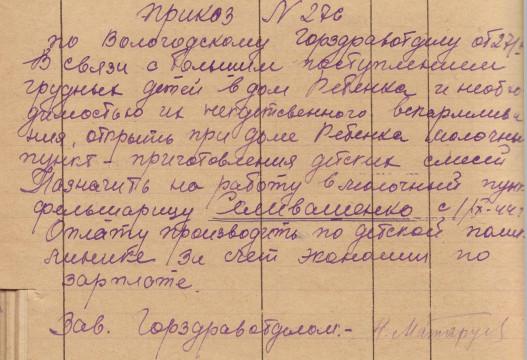 приказ N 276
по Вологодскому Горздравотделу от 27/
В связи с большим поступлением
грудных детей в дом Ребенка и необхо
димостью их искусственного вскармлива
ния, открыть при доме Ребенка молочный
пункт - приготовления детских смесей
Назначить на работу в молочный пунк
фельшарицу Селивашенко с 1/IX-44г
Оплату производить по детской поли
клинике за счет экономии по
зарплате.
Зав. Горздравотделом. -